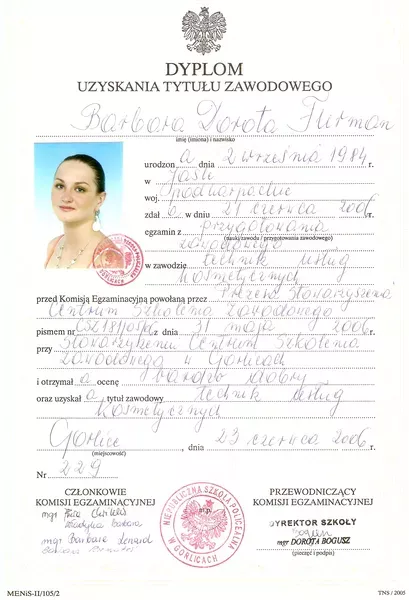 DYPLOM
UZYSKANIA TYTUŁU ZAWODOWEGO
Barbara Dorota Furman
imię (imiona) i nazwisko
urodzona dnia 2 września 1984 r.
w Jaśle
woj. podkarpackie
zdała w dniu 21 czerwca 2006 r.
egzamin z przygotowania
(nauki zawodu / przygotowania zawodowego)
zawodowego
w zawodzie technik usług
kosmetycznych
przed Komisją Egzaminacyjną powołaną przez Prezesa Stowarzyszenia
Centrum Szkolenia Zawodowego
pismem nr z dnia 31 maja 2006 r.
przy Stowarzyszeniu Centrum Szkolenia
Zawodowego w Gorlicach
i otrzymała ocenę bardzo dobry
oraz uzyskała tytuł zawodowy technik usług
kosmetycznych
Gorlice, dnia 23 czerwca 2006 r.
(miejscowość)
Nr 229
CZŁONKOWIE
KOMISJI EGZAMINACYJNEJ
mgr
Barbara
mgr Barbara
m.p.
NIEPUBLICZNA SZKOŁA POLICEALNA
W GORLICACH
PRZEWODNICZĄCY
KOMISJI EGZAMINACYJNEJ
DYREKTOR SZKOŁY
mgr DOROTA BOGUSZ
(pieczęć i podpis)
MENiS-II/105/2
TNS / 2005